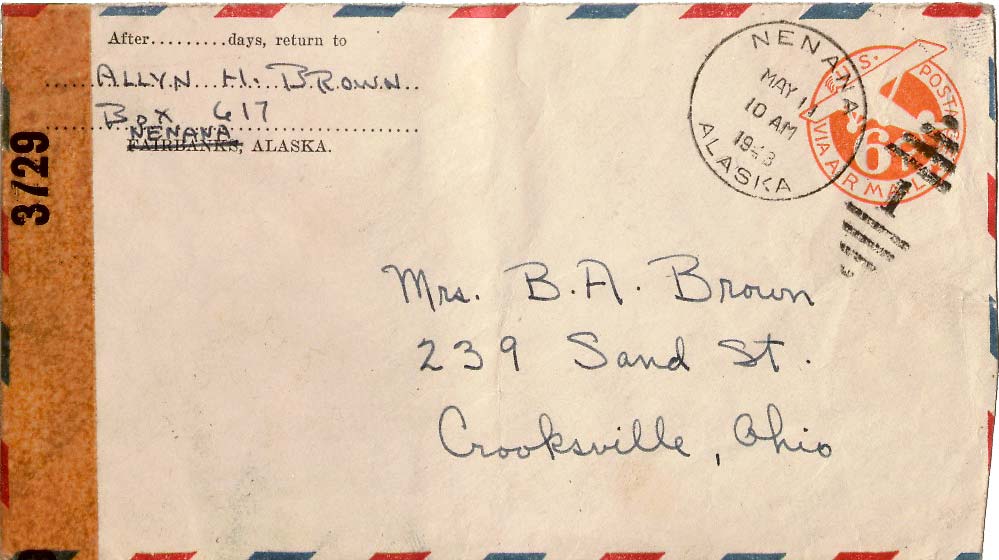 After.........days, return to
ALLYN H. BROWN
Box 617
NENANA
FAIRBANKS, ALASKA.
3729
NENANA
MAY 11
10 AM
1943
ALASKA
U.S. POSTAGE
6¢
VIA AIR MAIL
1
Mrs. B. A. Brown
239 Sand St.
Crooksville, Ohio